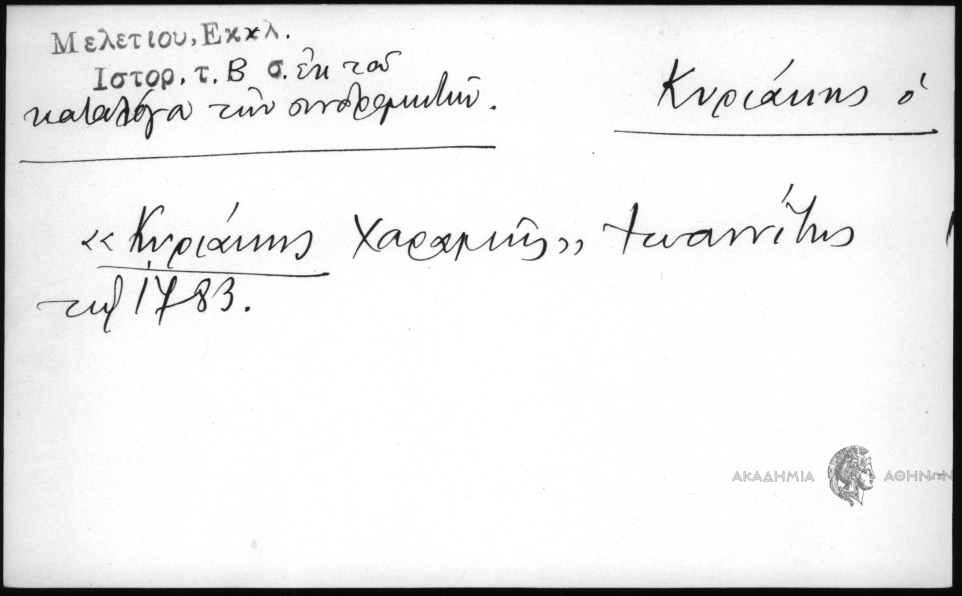 Μελετίου, Εκκλ.
Ιστορ. τ. Β σ. ἐκ τοῦ
καταλόγου τῶν συνδρομητῶν.
Κυριάκης ὁ
«Κυριάκης Χαραμῆς» Ἰωαννίτης
τῷ 1783.
ΑΚΑΔΗΜΙΑ ΑΘΗΝΩΝ